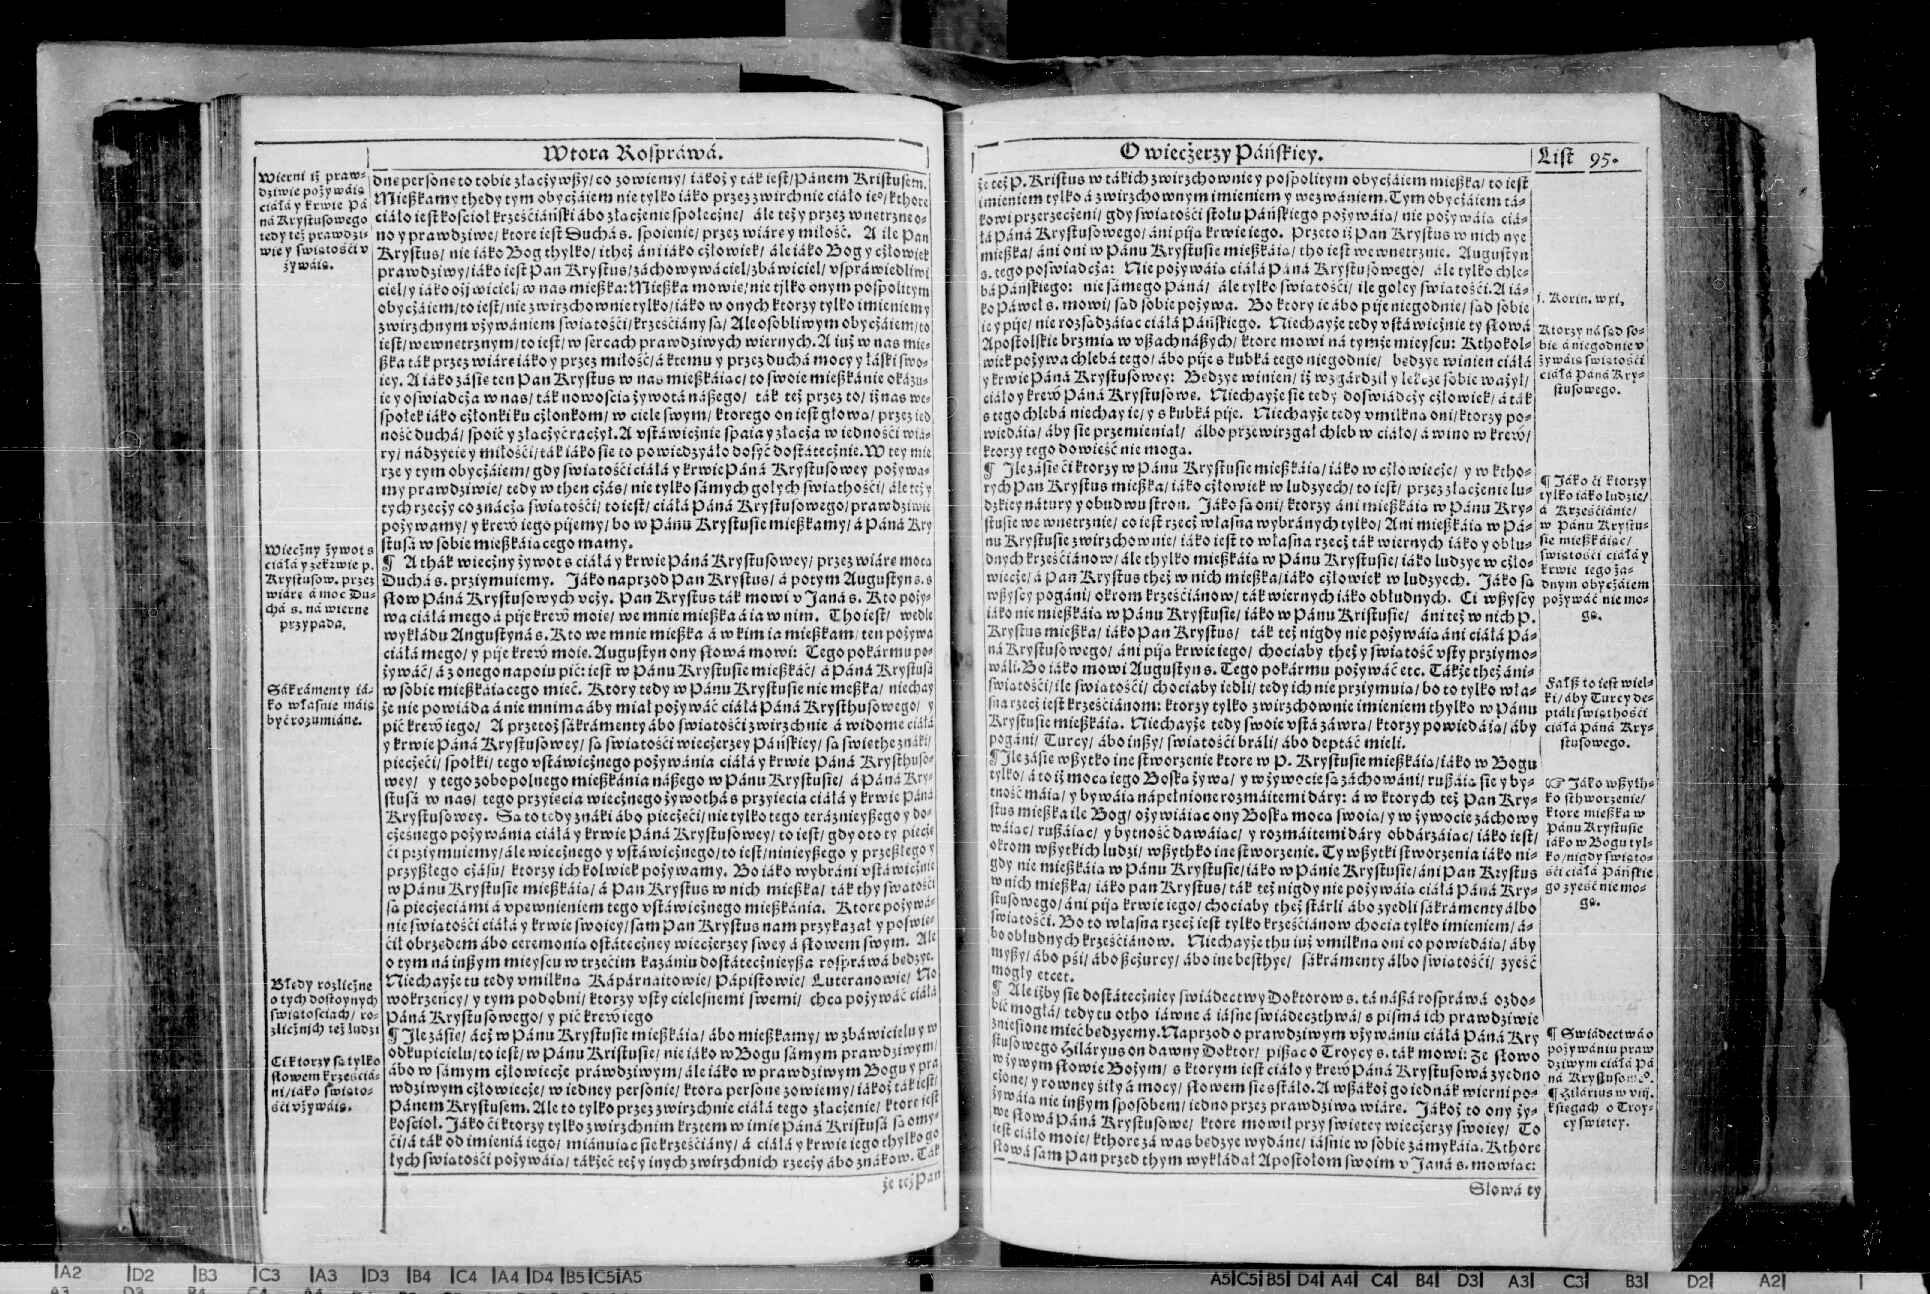 Wtora Rosprawá.
Wierni iż praw-
dziwie pożywáią
ciáłá y krwie Pá
ná Krystusowego
tedy też prawdzi-
wie y swiątośći v
żywáią.
Wieczny żywot s
ciáłá y ze krwie P.
Krystusow. przez
wiárę á moc Du-
chá s. ná wierne
przypada.
Sákrámenty iá-
ko własnie máią
być rozumiáne.
Błędy rozliczne
o tych dostoynych
swiątosciach/ ro-
zlicznich też ludzi
Ci ktorzy są tylko
słowem krześciá-
ni/ iáko swiąto-
ści vżywáią.
dne personę to tobie złączywszy/ co zowiemy/ iákoż y ták iest/ Pánem Kristusem.
Mieszkamy thedy tym obyczáiem nie tylko iáko przez zwirzchnie ciáło ieº/ kthore
ciáło iest kościoł krześćiáński ábo złączenie społeczne/ ále też y przez wnętrzne o-
no y prawdziwe/ ktore iest Duchá s. spoienie/ przez wiárę y miłość. A ile Pan
Krystus/ nie iáko Bog thylko/ itheż áni iáko człowiek/ ále iáko Bog y człowiek
prawdziwy/ iáko iest Pan Krystus/ záchowywáciel/ zbáwiciel/ vspráwiedliwi
ciel/ y iáko ożjwiciel/ w nas mieszka: Mieszka mowię/ nie tjlko onym pospolitym
obyczáiem/ to iest/ nie zwirzchownie tylko/ iáko w onych ktorzy tylko imieniem y
zwirzchnym vżywániem swiątośći/ krześćiány są/ Ale osobliwym obyczáiem/ to
iest/ wewnętrznym/ to iest/ w sercach prawdziwych wiernych. A iuż w nas mie-
szka ták przez wiárę iáko y przez miłość/ á ktemu y przez duchá mocy y łáski swo-
iey. A iáko zásię ten Pan Krystus w nas mieszkáiąc/ to swoie mieszkánie okázu-
ie y oświadcza w nas/ ták nowością żywotá nászego/ ták też przez to/ iż nas we-
społek iáko członki ku członkom/ w ciele swym/ ktorego on iest głową/ przez ied
ność duchá/ spoić y złączyć raczył. A vstáwicznie spaia y złącza w iedności wiá-
ry/ nádzyeie y miłości/ ták iáko się to powiedzyáło dosyć dostátecznie. W tey mie
rze y tym obyczáiem/ gdy swiątości ciáłá y krwie Páná Krystusowey pożywa-
my prawdziwie/ tedy w then czás/ nie tylko sámych gołych swiathośći/ ále też y
tych rzeczy co znáczą swiątości/ to iest/ ciáłá Páná Krystusowego/ prawdziwie
pożywamy/ y krew iego pijemy/ bo w Pánu Krystusie mieszkamy/ á Páná Kry
stusá w sobie mieszkáiącego mamy.
¶ A thák wieczny żywot s ciáłá y krwie Páná Krystusowey/ przez wiárę mocą
Duchá s. przyimuiemy. Jáko naprzod Pan Krystus/ á potym Augustyn s. s
słow Páná Krystusowych vczy. Pan Krystus ták mowi v Janá s. Kto poży-
wa ciáłá mego á pije krew moię/ we mnie mieszka á ia w nim. Tho iest/ wedle
wykłádu Augustyná s. Kto we mnie mieszka á w kim ia mieszkam/ ten pożywa
ciáłá mego/ y pije krew moię. Augustyn ony słowá mowi: Tego pokármu po-
żywáć/ á z onego napoiu pić: iest w Pánu Krystusie mieszkáć/ á Páná Krystusá
w sobie mieszkáiącego mieć. Ktory tedy w Pánu Krystusie nie meszka/ niechay
że nie powiáda á nie mnima áby miał pożywáć ciáłá Páná Krysthusowego/ y
pić krew iego/ A przetoż sákrámenty ábo swiątości zwirzchnie á widome ciáłá
y krwie Páná Krystusowey/ są swiątości wieczerzey Páńskiey/ są swięthe znáki/
pieczęći/ społki/ tego vstáwicznego pożywánia ciáłá y krwie Páná Krysthuso-
wey/ y tego zobopolnego mieszkánia nászego w Pánu Krystusie/ á Páná Kry-
stusá w nas/ tego przyięcia wiecznego żywothá s przyięcia ciáłá y krwie Páná
Krystusowey. Są to tedy znáki ábo pieczęći/ nie tylko tego teráznieyszego y do-
czesnego pożywánia ciáłá y krwie Páná Krystusowey/ to iest/ gdy oto ty pieczę
ći przyimuiemy/ ále wiecznego y vstáwicznego/ to iest/ ninieyszego y przeszłego y
przyszłego czásu/ ktorzy ich kolwiek pożywamy. Bo iáko wybráni vstáwicznie
w Pánu Krystusie mieszkáią/ á Pan Krystus w nich mieszka/ ták thy swátości
są pieczęciámi á vpewnieniem tego vstáwicznego mieszkánia. Ktore pożywá-
nie swiątości ciáłá y krwie swoiey/ sam Pan Krystus nam przykazał y poswię-
ćił obrzędem ábo ceremonią ostáteczney wieczerzey swey á słowem swym. Ale
o tym ná inszym mieyscu w trzećim kazániu dostátecznieysza rosprawá będzye.
Niechayże tu tedy vmilkną Káparnaitowie/ Papistowie/ Luteranowie/ No
wokrzeńcy/ y tym podobni/ ktorzy vsty cielesnemi swemi/ chcą pożywáć ciáłá
Páná Krystusowego/ y pić krew iego
¶ Jle zásię/ ácż w Pánu Krystusie mieszkáią/ ábo mieszkamy/ w zbáwicielu y w
odkupicielu/ to iest/ w Pánu Kristusie/ nie iáko w Bogu sámym prawdziwym/
ábo w sámym człowiecze prawdziwym/ ále iáko w prawdziwym Bogu y pra
wdziwym człowiecze/ w iedney personie/ ktorą personę zowiemy/ iákoż ták iest/
Pánem Krystusem. Ale to tylko przez zwirzchnie ciáłá tego złączenie/ ktore iest
kościoł. Jáko ći ktorzy tylko zwirzchnim krztem w imię Páná Kristusá są omy-
ći/ á ták od imienia iego/ miánuiac się krześćiány/ á ciáłá y krwie iego thylko go
łych swiątośći pożywáią/ tákżeć też y inych zwirzchnich rzeczy ábo znákow. Ták
że też Pan
O wieczerzy Páńskiey.
List 95.
że też P. Kristus w tákich zwirzchownie y pospolitym obyczáiem mieszka/ to iest
imieniem tylko á zwirzchownym imieniem y wezwániem. Tym obyczáiem tá-
kowi przerzeczeni/ gdy swiątośći stołu Páńskiego pożywáią/ nie pożywáią ciá-
łá Páná Krystusowego/ áni piją krwie iego. Przeto iż Pan Krystus w nich nye
mieszka/ áni oni w Pánu Krystusie mieszkáią/ tho iest wewnętrznie. Augustyn
s. tego poświadcza: Nie pożywáią ciáłá Páná Krystusowego/ ále tylko chle-
bá Páńskiego: nie sámego Páná/ ále tylko swiątośći/ ile gołey swiątośći. A iá-
ko Páweł s. mowi/ sąd sobie pożywa. Bo ktory ie ábo pije niegodnie/ sąd sobie
ie y pije/ nie rozsądzáiąc ciáłá Páńskiego. Niechayże tedy vstáwicznie ty słowá
Apostolskie brzmią w vszách nászych/ ktore mowi ná tymże mieyscu: Kthokol-
wiek pożywa chlebá tego/ ábo pije s kubká tego niegodnie/ będzye winien ciáłá
y krwie Páná Krystusowey: Będzye winien/ iż wzgárdził y lekcze sobie ważył/
ciáło y krew Páná Krystusowe. Niechayże się tedy doświádczy człowiek/ á ták
s tego chlebá niechay ie/ y s kubká pije. Niechayże tedy vmilkną oni/ ktorzy po-
wiedáią/ áby się przemieniał/ álbo przewirzgał chleb w ciáło/ á wino w krew/
ktorzy tego dowieść nie mogą.
¶ Jle zásię ći ktorzy w Pánu Krystusie mieszkáią/ iáko w człowiecze/ y w ktho-
rych Pan Krystus mieszka/ iáko człowiek w ludzyech/ to iest/ przez złączenie lu-
dzkiey nátury y obudwu stron. Jáko są oni/ ktorzy áni mieszkáią w Pánu Kry-
stusie wewnętrznie/ co iest rzecz własna wybránych tylko/ Ani mieszkáią w Pá-
nu Krystusie zwirzchownie/ iáko iest to własna rzecz ták wiernych iáko y obłu-
dnych krześćiánow/ ále thylko mieszkáią w Pánu Krystusie/ iáko ludzye w czło-
wiecze/ á Pan Krystus theż w nich mieszka/ iáko człowiek w ludzyech. Jáko są
wszyscy pogáni/ okrom krześćiánow/ ták wiernych iáko obłudnych. Ci wszyscy
iáko nie mieszkáią w Pánu Krystusie/ iáko w Pánu Kristusie/ áni też w nich P.
Krystus mieszka/ iáko Pan Krystus/ ták też nigdy nie pożywáią áni ciáłá Pá-
ná Krystusowego/ áni piją krwie iego/ chociaby theż y swiątość vsty przyimo-
wáli. Bo iáko mowi Augustyn s. Tego pokármu pożywáć etc. Tákże theż áni-
swiątości/ ile swiątości/ chociaby iedli/ tedy ich nie przyimuią/ bo to tylko wła-
sna rzecz iest krześciánom: ktorzy tylko zwirzchownie imieniem thylko w Pánu
Krystusie mieszkáią. Niechayże tedy swoie vstá záwrą/ ktorzy powiedáią/ áby
pogáni/ Turcy/ ábo inszy/ swiątości bráli/ ábo deptáć mieli.
¶ Jle zásię wszytko ine stworzenie ktore w P. Krystusie mieszkáią/ iáko w Bogu
tylko/ á to iż mocą iego Boską żywą/ y w żywocie są záchowáni/ ruszáią się y by-
tność máią/ y bywáią nápełnione rozmáitemi dáry: á w ktorych też Pan Kry-
stus mieszka ile Bog/ ożywiáiąc ony Boską mocą swoią/ y w żywocie záchowy
wáiąc/ ruszáiąc/ y bytność dawáiąc/ y rozmáitemi dáry obdarzáiąc/ iáko iest/
okrom wszytkich ludzi/ wszythko ine stworzenie. Ty wszytki stworzenia iáko ni-
gdy nie mieszkáią w Pánu Krystusie/ iáko w Pánie Krystusie/ áni Pan Krystus
w nich mieszka/ iáko pan Krystus/ ták też nigdy nie pożywáią ciáłá Páná Kry-
stusowego/ áni piją krwie iego/ chociaby theż stárli ábo zyedli sákrámenty álbo
swiątości. Bo to własna rzecz iest tylko krześćiánow chocia tylko imieniem/ á-
bo obłudnych krześćiánow. Niechayże thu iuż vmilkną oni co powiedáią/ áby
myszy/ ábo psi/ ábo szczurcy/ ábo ine besthye/ sákrámenty álbo swiątości/ zyeść
mogły etcet.
¶ Ale iżby się dostáteczniey swiádectwy Doktorow s. tá nászá rosprawá ozdo-
bić mogłá/ tedy tu otho iáwne á iásne swiádecztwá/ s pismá ich prawdziwie
zniesione mieć będzyemy. Naprzod o prawdziwym vżywániu ciáłá Páná Kry
stusowego Hiláryus on dawny Doktor/ pisząc o Troycy s. ták mowi: Że słowo
w żywym słowie Bożym/ s ktorym iest ciáło y krew Páná Krystusowá zyedno
czone/ y rowney siły á mocy/ słowem się sstáło. A wszákoż go iednák wierni po-
żywáią nie inszym sposobem/ iedno przez prawdziwą wiárę. Jákoż to ony ży-
we słowá Páná Krystusowe/ ktore mowił przy swiętey wieczerzy swoiey/ To
iest ciáło moie/ kthore zá was będzye wydáne/ iásnie w sobie zámykáią. Kthore
słowá sam Pan przed thym wykłádał Apostołom swoim v Janá s. mowiąc:
Słowá ty
j. Korin. w xi,
Ktorzy ná sąd so-
bie á niegodnie v
żywáią swiątości
ciáłá Páná Kry-
stusowego.
¶ Jáko ći ktorzy
tylko iáko ludzie/
á Krześćiánie/
w Pánu Krystu-
sie mieszkáiąc/
swiątości ciáłá y
krwie iego żá-
dnym obyczáiem
pożywáć nie mo-
gą.
Fałsz to iest wiel-
ki/ áby Turcy de-
ptáli swiąthośći
ciáłá Páná Kry-
stusowego.
☞ Jáko wszyth-
ko sthworzenie/
ktore mieszka w
Pánu Krystusie
iáko w Bogu tyl-
ko/ nigdy swiąto-
ści ciáłá Páńskie
go zyeść nie mo-
gą.
¶ Swiádectwá o
pożywániu praw
dziwym ciáłá Pá
ná Krystusoweº.
¶ Hilárius w viij.
księgach o Troy-
cy swiętey.
A2 D2 B3 C3 A3 D3 B4 C4 A4 D4 B5 C5 A5
A5 C5 B5 D4 A4 C4 B4 D3 A3 C3 B3 D2 A2